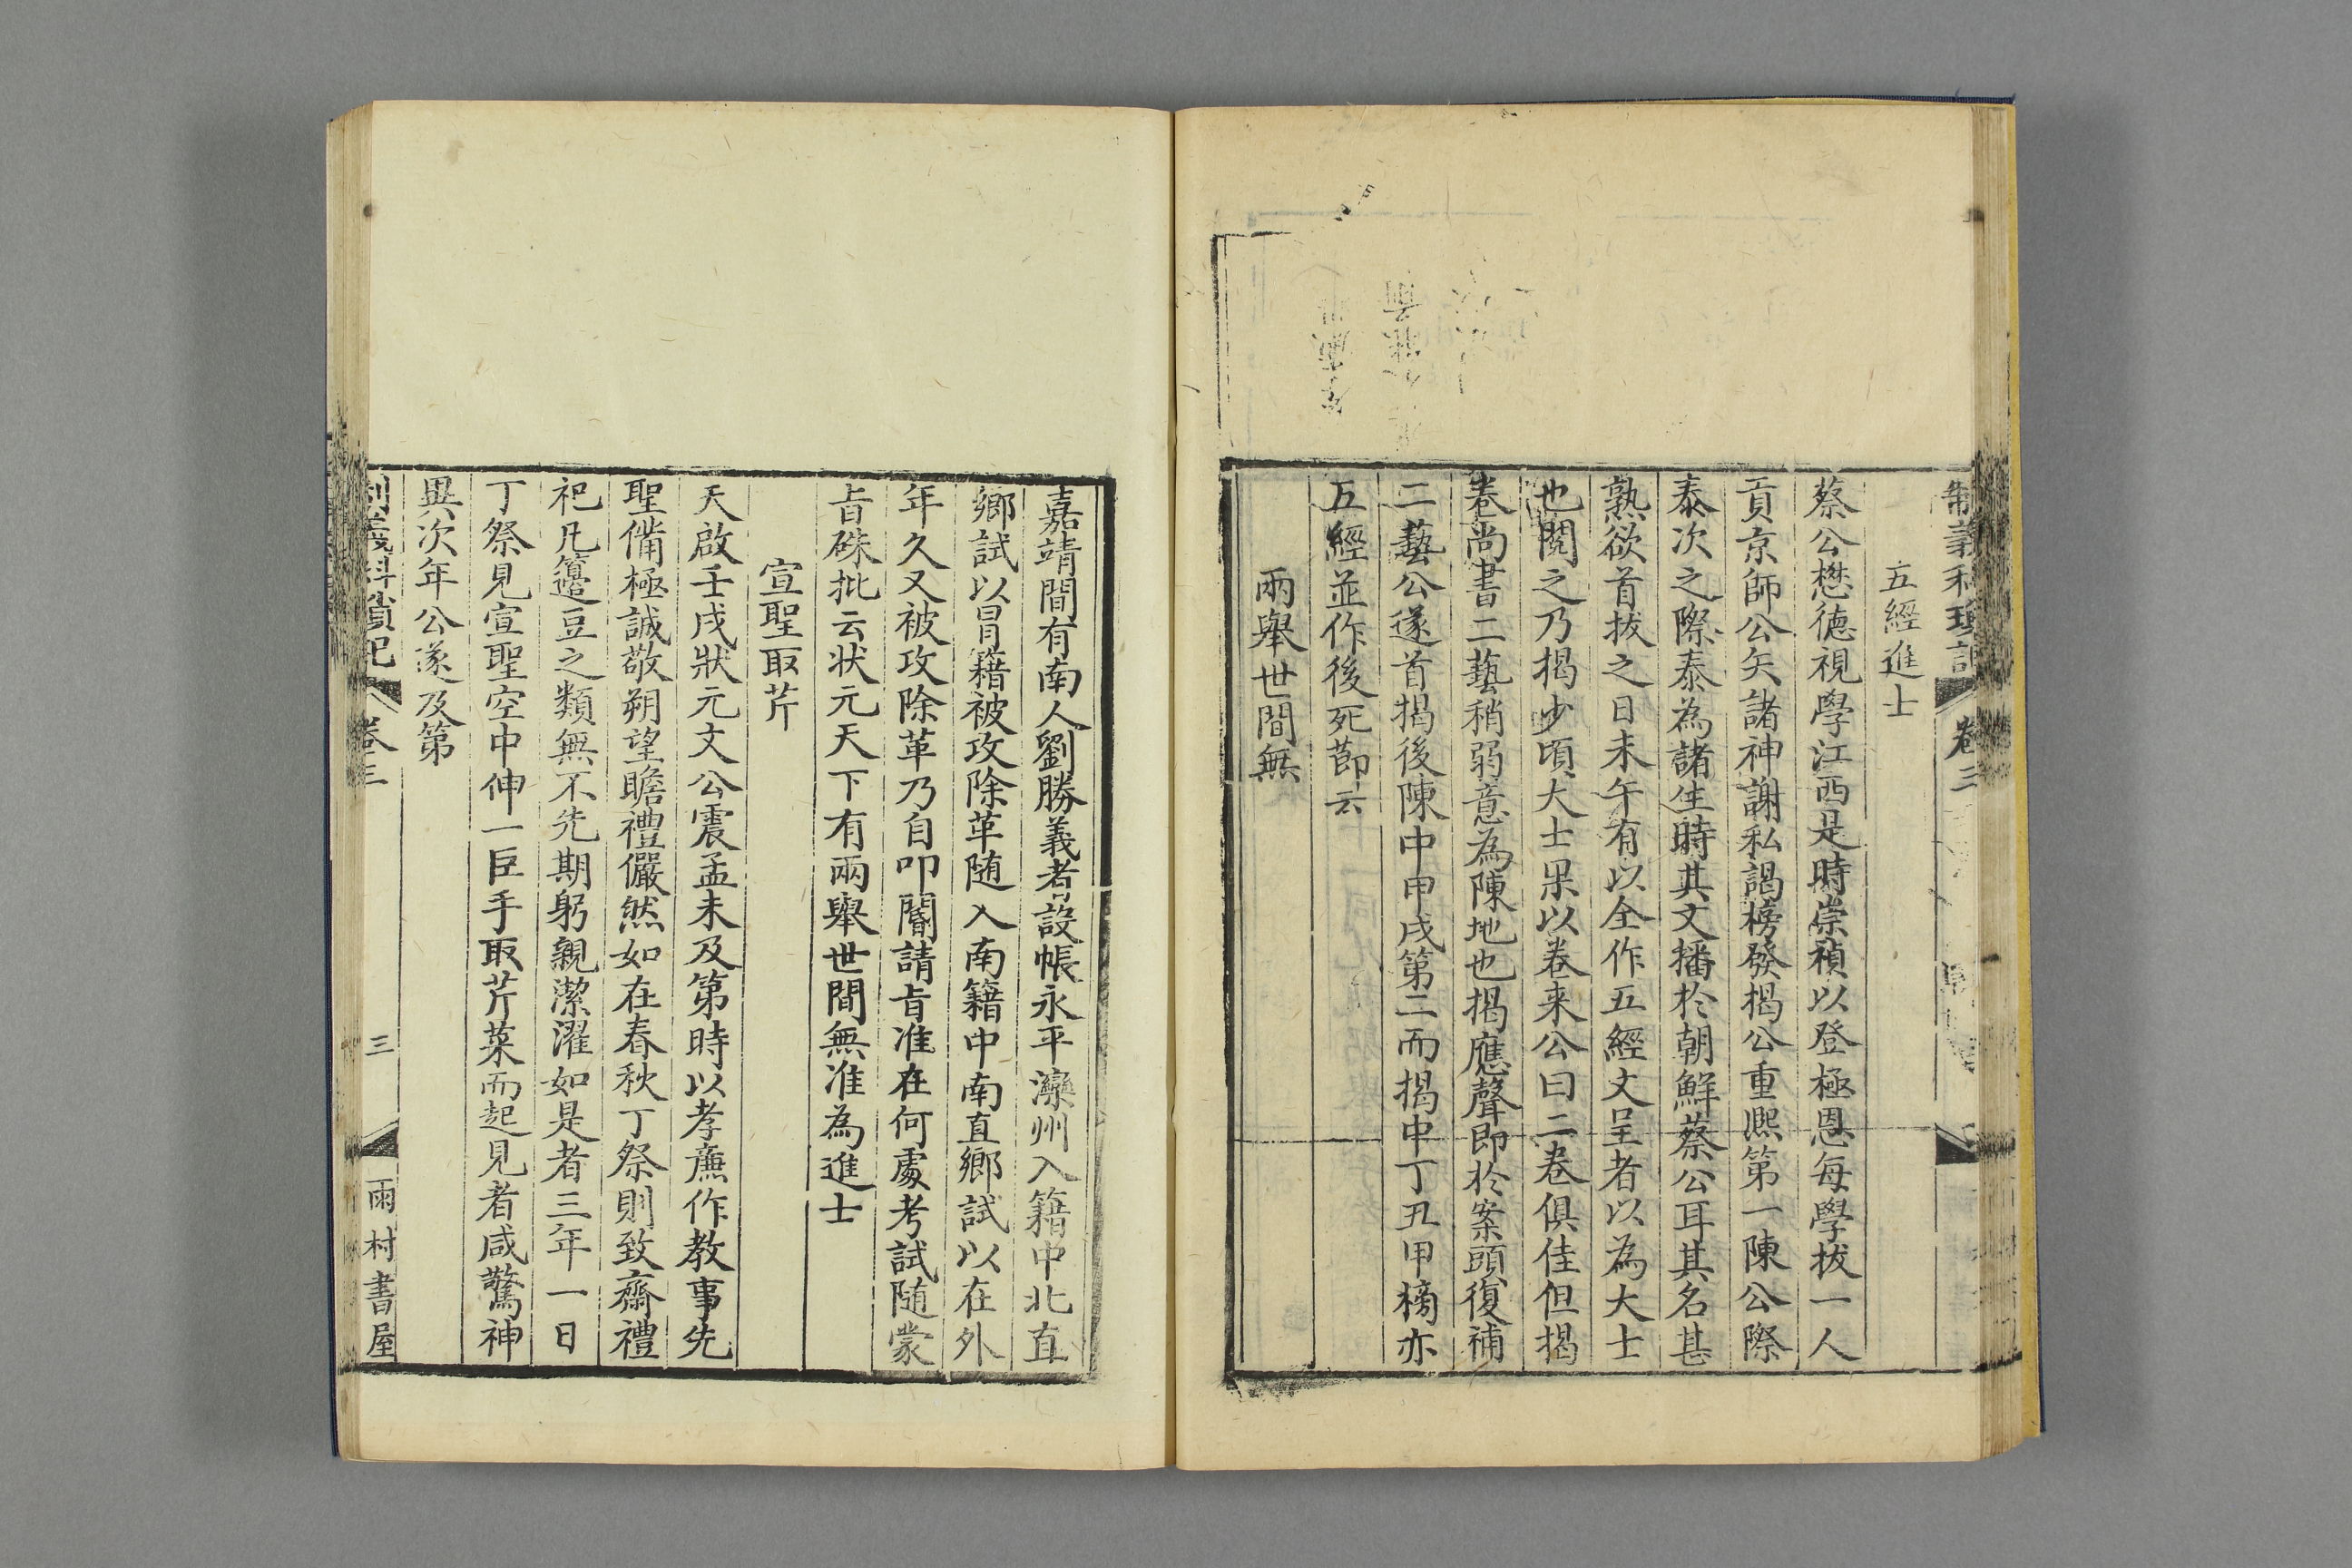 制義科瑣記 卷三
五經進士
蔡公懋德視學江西是時崇禎以登極恩每學拔一人
貢京師公矢諸神謝私謁榜發揭公重熙第一陳公際
泰次之際泰為諸生時其文播於朝鮮蔡公耳其名甚
熟欲首拔之日未午有以全作五經文呈者以為大士
也閱之乃揭少頃大士果以卷来公曰二卷俱佳但揭
卷尚書二藝稍弱意為陳地也揭應聲即於案頭復補
二藝公遂首揭後陳中甲戌第二而揭中丁丑甲榜亦
五經並作後死節云
兩舉世間無
嘉靖間有南人劉勝義者設帳永平灤州入籍中北直
鄉試以冒籍被攻除革随入南籍中南直鄉試以在外
年久又被攻除革乃自叩閽請旨准在何處考試随蒙
旨硃批云状元天下有兩舉世間無准為進士
宣聖取芹
天啟壬戌狀元文公震孟未及第時以孝亷作教事先
聖備極誠敬朔望瞻禮儼然如在春秋丁祭則致齋禮
祀凡籩豆之類無不先期躬親潔濯如是者三年一日
丁祭見宣聖空中伸一巨手取芹菜而起見者咸驚神
異次年公遂及第
制義科瑣記 卷三 三 雨村書屋